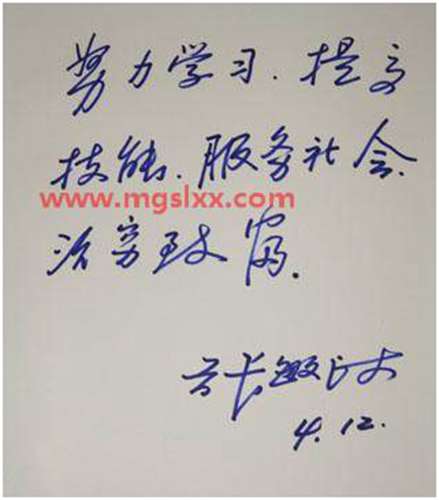 努力学习、提高
技能、服务社会、
www.mgslxx.com
治穷致富.
张
4.12.